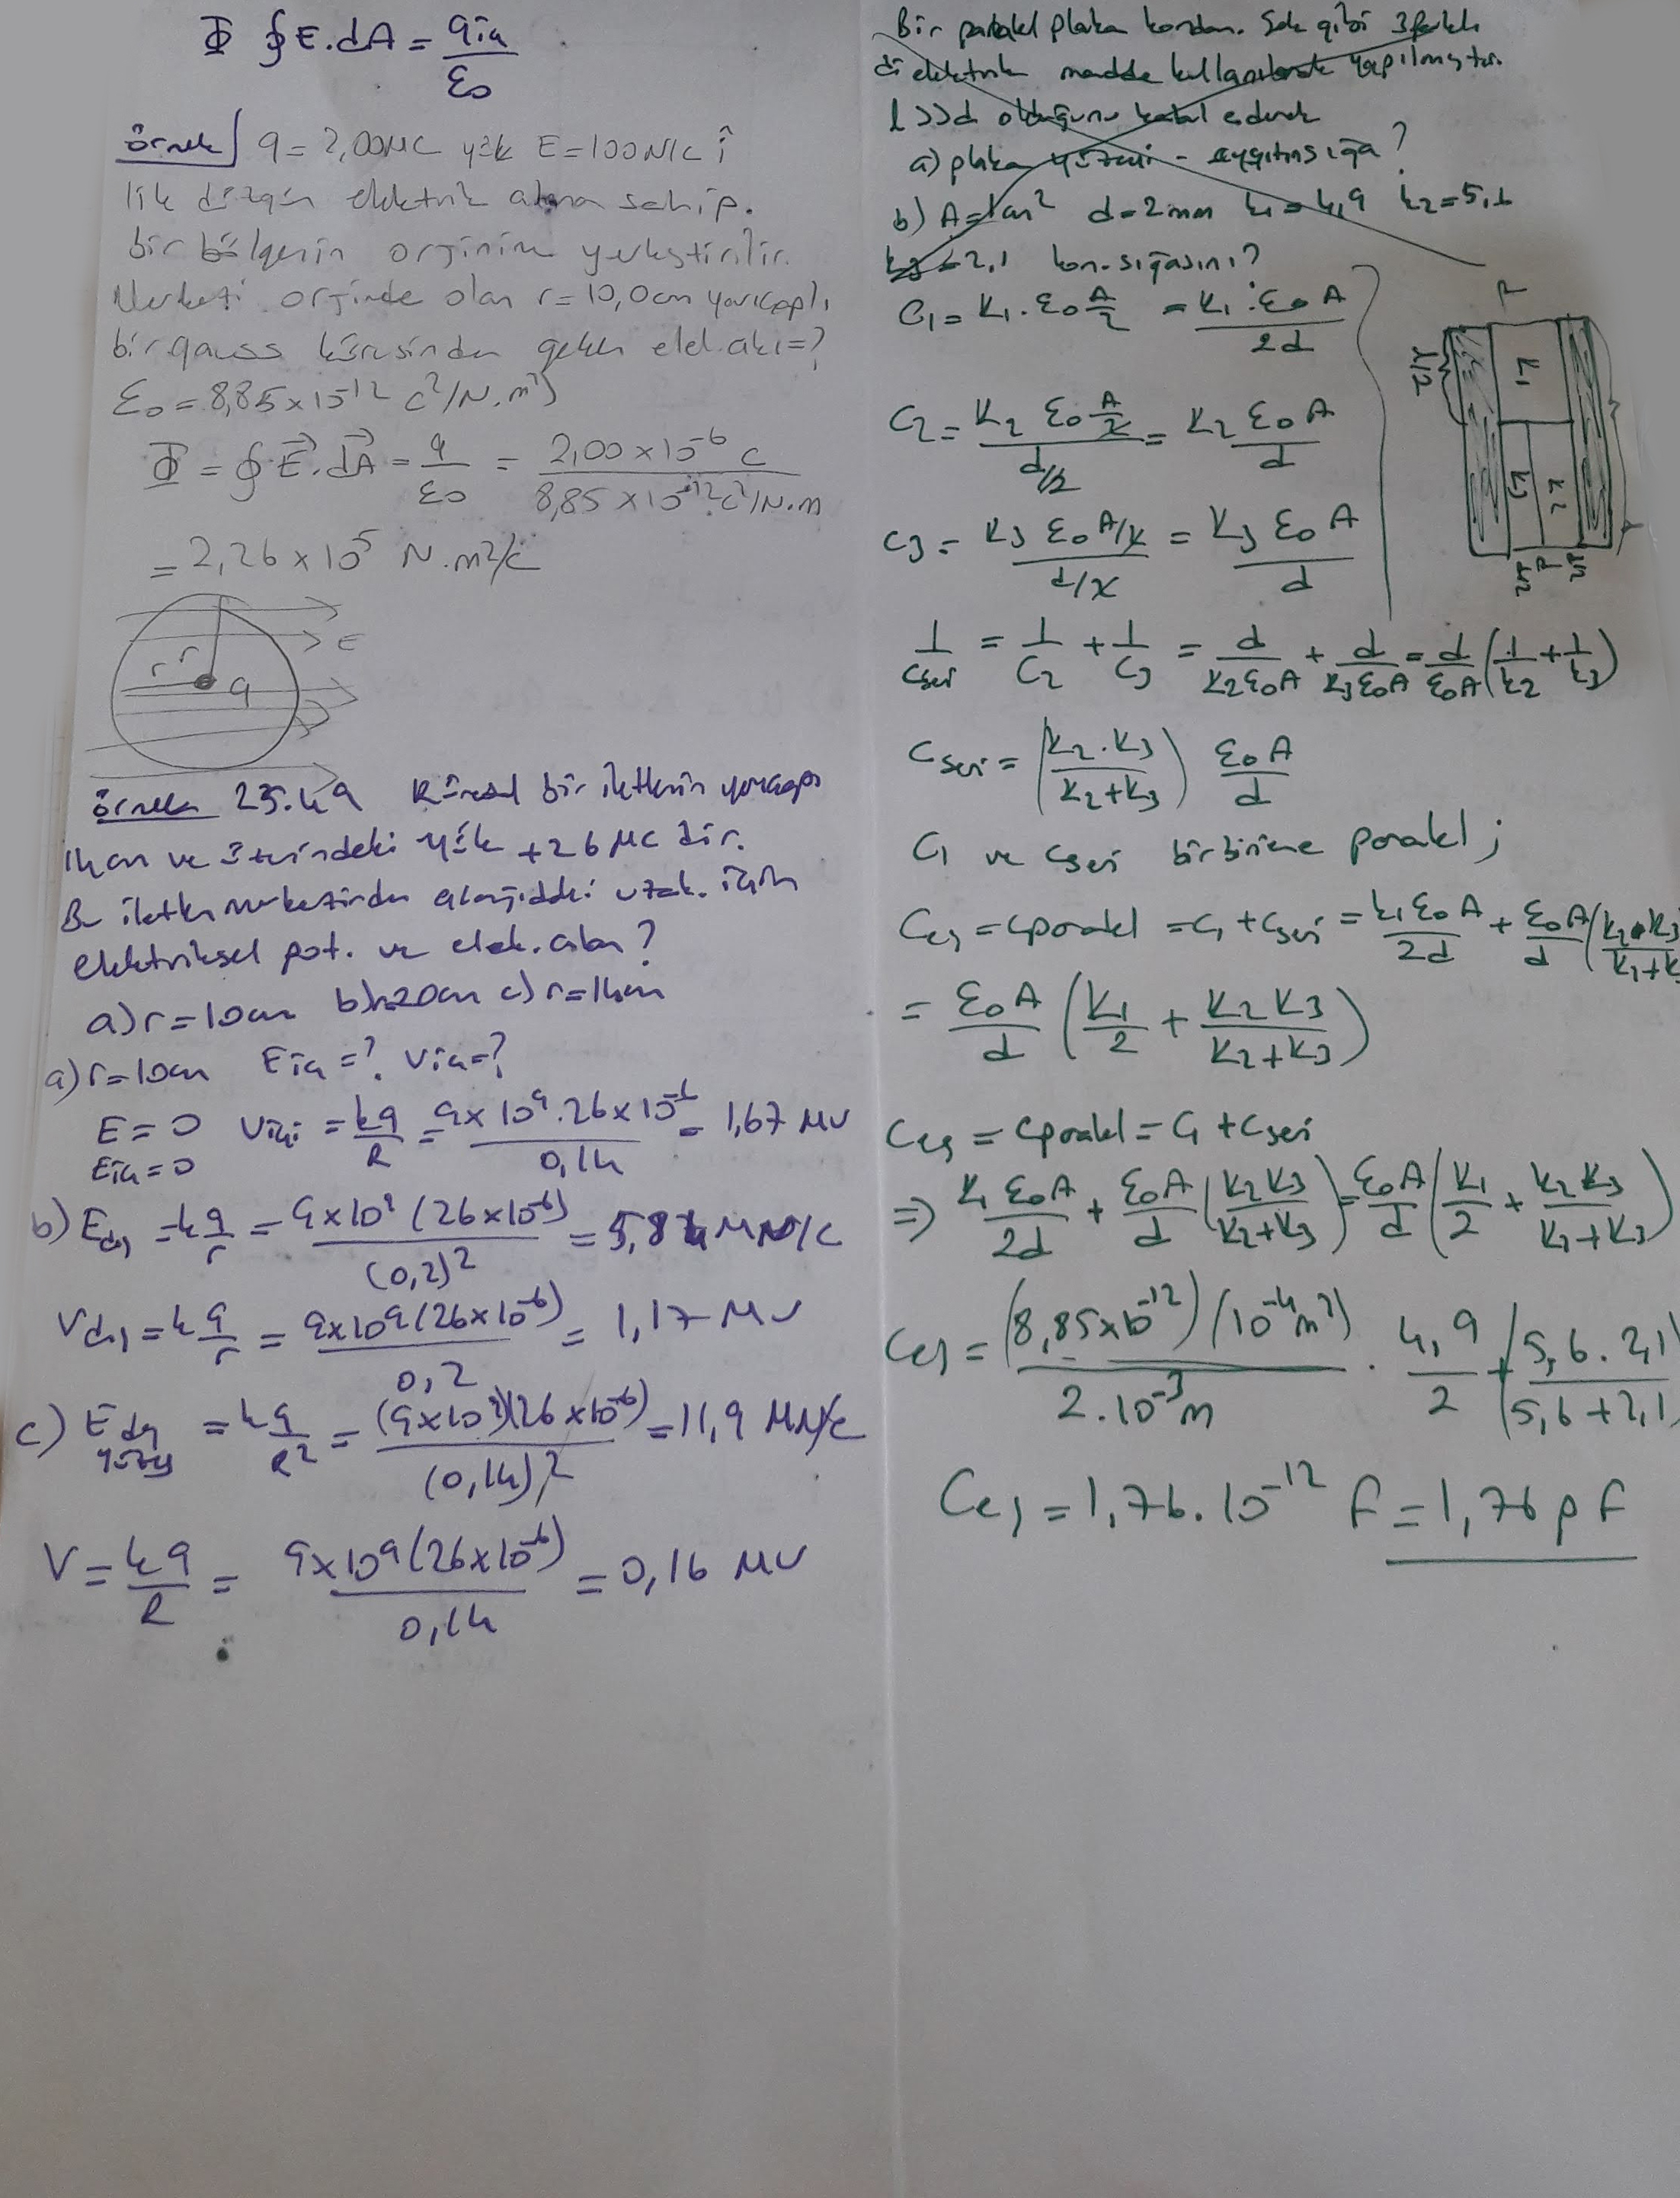 Φ ∮E.dA = qiç/ε0
örnek| q = 2,00μC yük E=100N/C î
lik düzgün elektrik alana sahip.
bir bölgenin orjinine yerleştirilir.
Merkezi orjinde olan r=10,0cm yarıçaplı
bir gauss küresinden geçen elek.akı=?
ε0 = 8,85×10-12 C²/N.m²)
Φ = ∮E.dA = q/ε0 = 2,00×10-6 C / 8,85×10-12 C²/N.m
= 2,26×10⁵ N.m²/C
E
r r
q
örnek 25.49 Küresel bir iletkenin yarıçapı
14cm ve üzerindeki yük +26μC dir.
Bu iletken merkezinden aşağıdaki uzak. için
elektriksel pot. ve elek. alan?
a) r=10cm b) r=20cm c) r=14cm
a) r=10cm Eiç=? Viç=?
E=0 Viç = kq/R = 9×10⁹.26×10-6 / 0,14 = 1,67 MV
Eiç=0
b) Edış = k q/r = 9×10⁹ (26×10-6) / (0,2)² = 5,84 MN/C
Vdış = k q/r = 9×10⁹(26×10-6) / 0,2 = 1,17 MV
c) Edış yüzey = k q/R² = (9×10⁹)(26×10-6) / (0,14)² = 11,9 MN/C
V = kq/R = 9×10⁹(26×10-6) / 0,14 = 0,16 MV
Bir paralel plaka kondan. Şek gibi 3 farklı
di elektrik madde kullanılarak yapılmıştır.
l>>d olduğunu kabul ederek
a) plaka yüzeyi - aygıtın sığa?
b) A=1cm² d=2mm k1=4,9 k2=5,6
k3=2,1 kon. sığasını?
C1 = K1.ε0 A/2 = K1.ε0 A / 2d
C2 = K2 ε0 A/2 / d/2 = K2 ε0 A / d
C3 = K3 ε0 A/2 / d/2 = K3 ε0 A / d
l
l/2
K1
K3 K2
d/2 d d/2
1/Cseri = 1/C2 + 1/C3 = d/K2ε0A + d/K3ε0A = d/ε0A (1/k2 + 1/k3)
Cseri = (K2.K3 / K2+K3) ε0A/d
C1 ve Cseri birbirine paralel;
Ceş = Cparalel = C1 + Cseri = k1ε0A/2d + ε0A/d (k2.k3 / K1+k
= ε0A/d (K1/2 + K2K3 / K2+K3)
Ceş = Cparalel = C1 + Cseri
⇒ K1ε0A/2d + ε0A/d (K2K3 / K2+K3) = ε0A/d (K1/2 + K2K3 / K1+K3)
Ceş = (8,85×10-12) (10-4m²) / 2.10-3m . 4,9/2 + (5,6.2,1 / 5,6+2,1
Ceş = 1,76.10-12 F = 1,76 pF